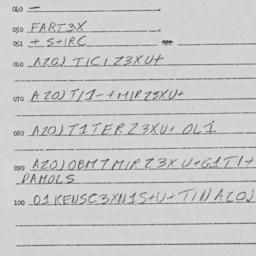 060 —
050 FART3X
051 + S+IRC
060 AZOJ TICIZ3XU+
070 AZOJT/1-+MIRZ3XU+
080 AZOJT1TERZ3XU+ OL1
090 AZOJOBM7MIRZ3XU+G1TI+
DAMOLS
100 O1KENSC3XN1S+U+TINAZOJ